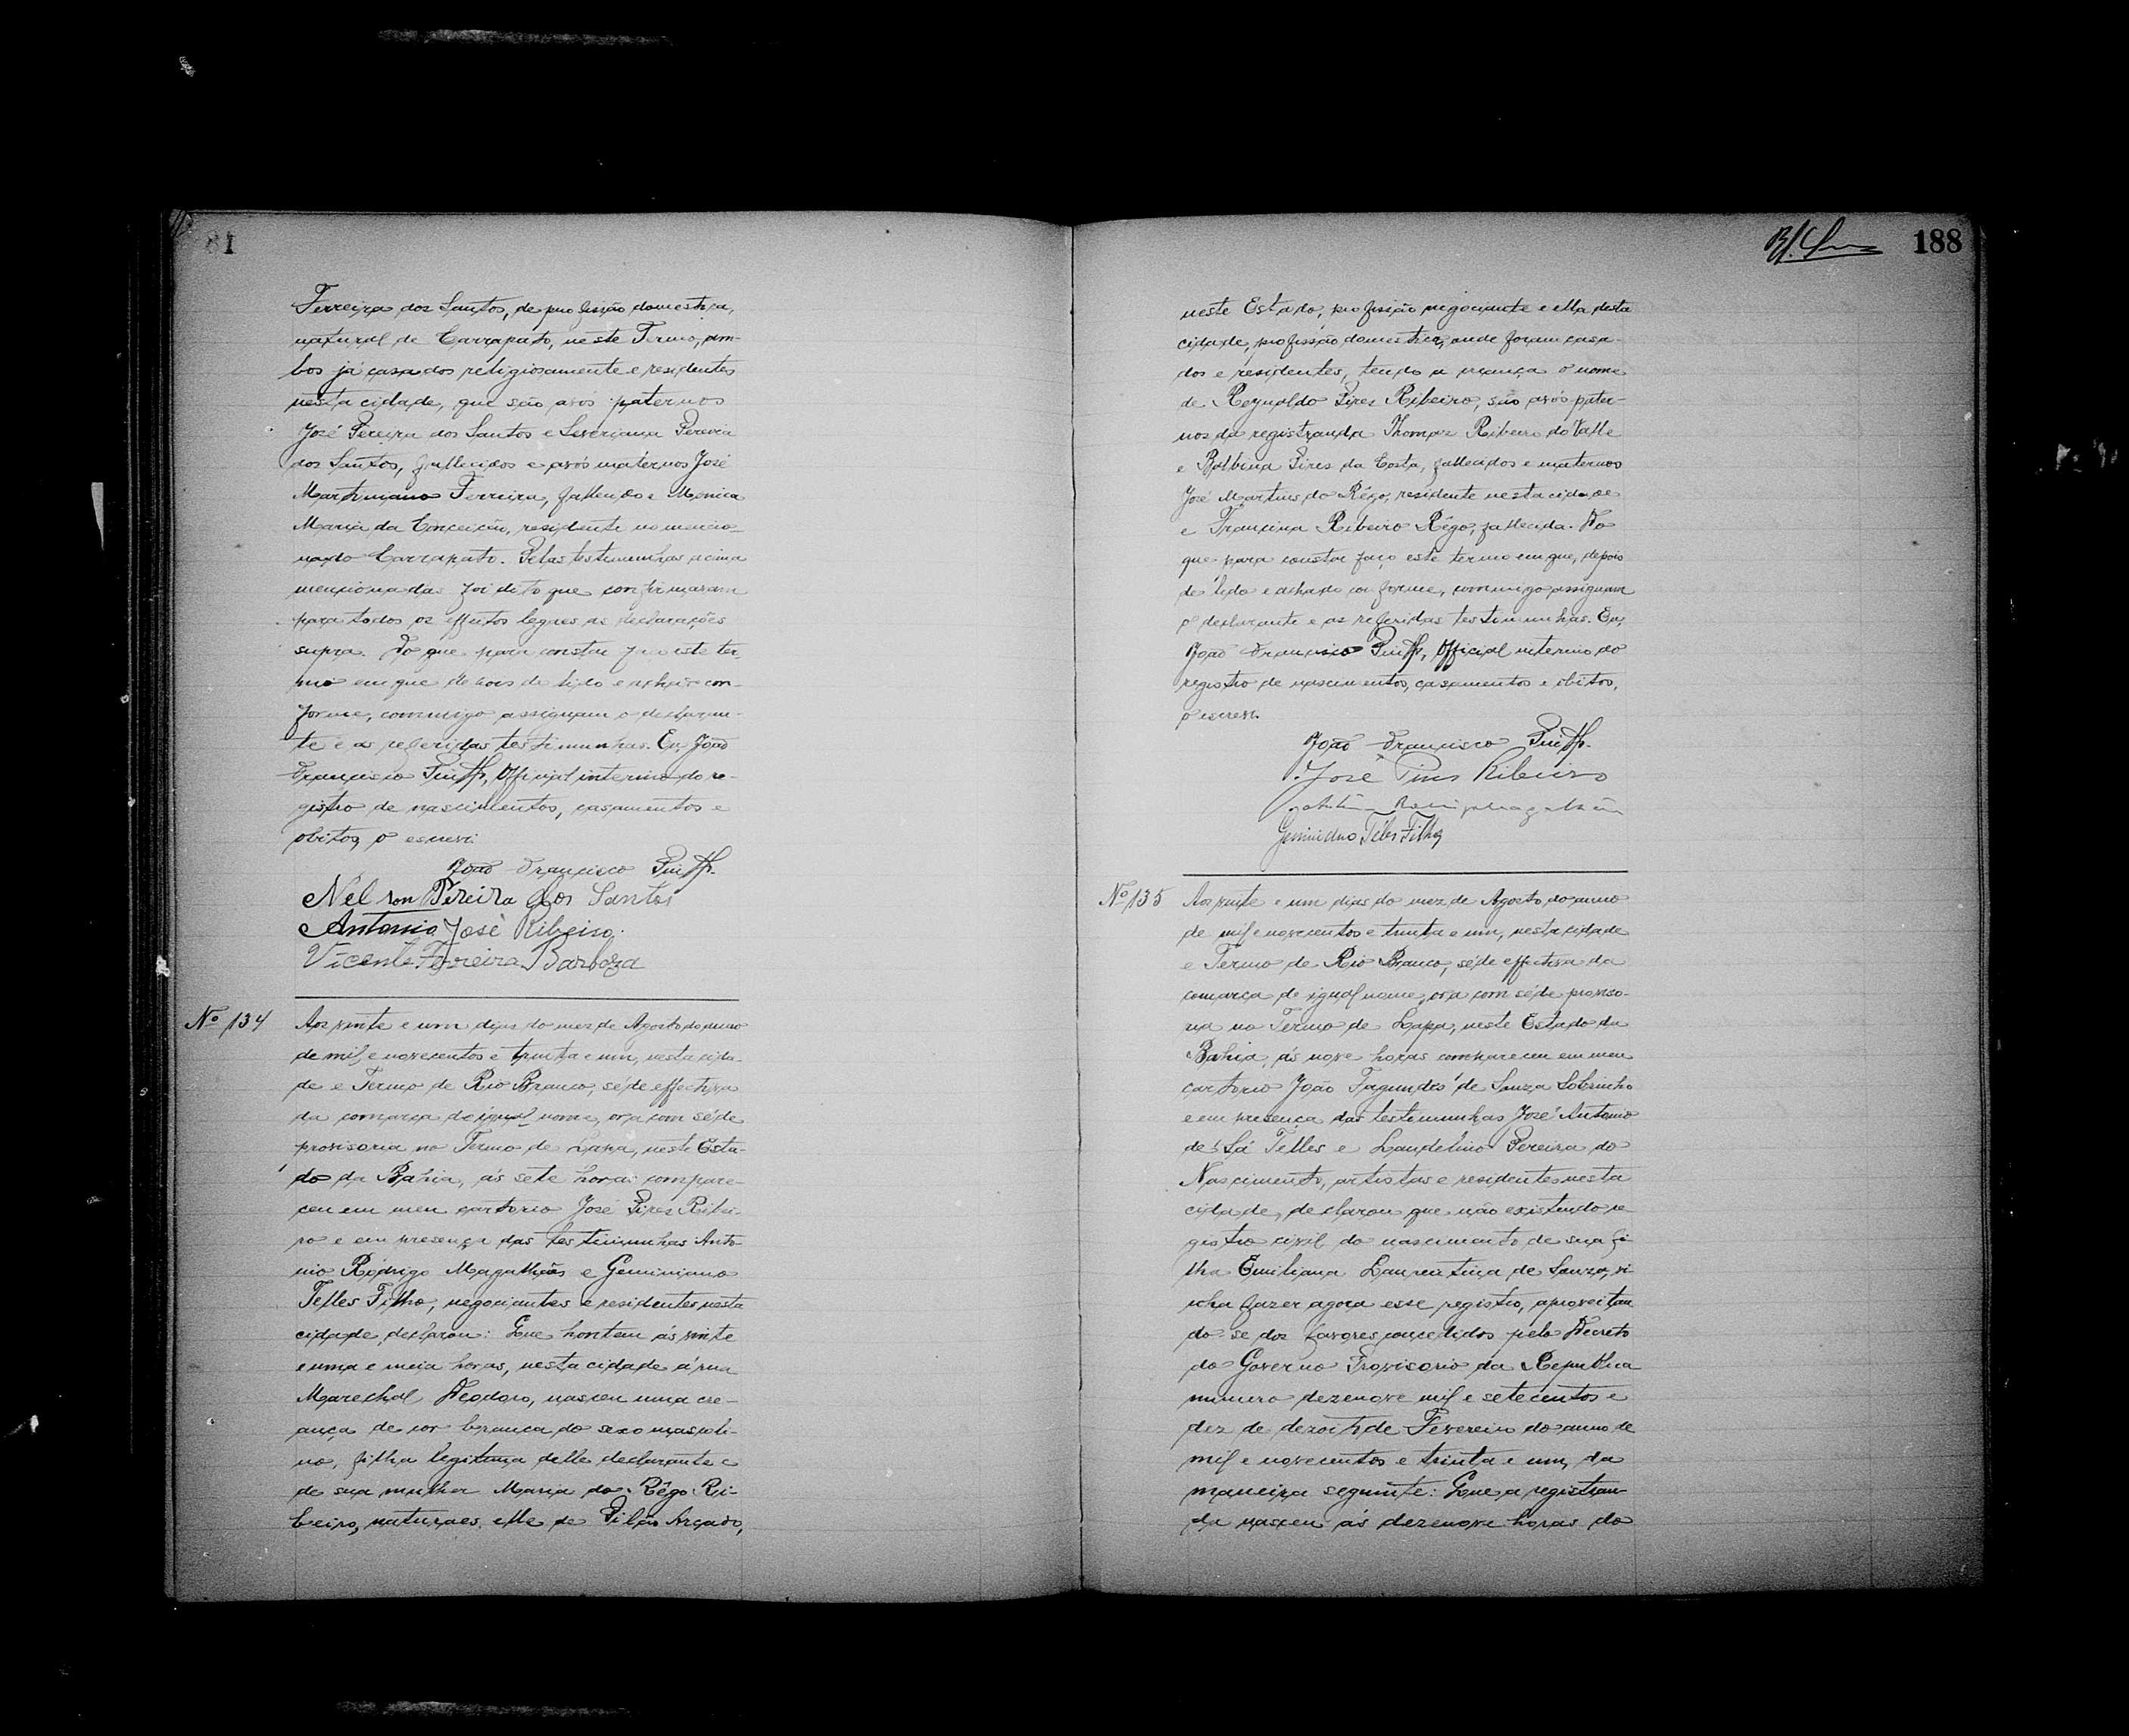 81
Ferreira dos Santos, de profissão domestica,
natural de Carrapato, neste Termo, am-
bos já casados religiosamente e residentes
nesta cidade, que são avos paternos
José Pereira dos Santos e Severiana Pereira
dos Santos, fallecidos e avós maternos José
Martiniano Ferreira, fallecido e Monica
Maria da Conceição, residente no mencio-
nado Carrapato. Pelas testimunhas acima
mencionadas foi dito que confirmavam
para todos os effeitos legaes as declarações
supra. Do que para constar faço este ter-
mo em que depois de lido e achado con-
forme, commigo assignam o declaran-
te e as referidas testimunhas. Eu, João
Francisco, Official interino do re-
gistro de nascimentos, casamentos e
obitos, o escrevi.
João Francisco
Nelson Pereira dos Santos
Antonio José Ribeiro.
Vicente Ferreira Barboza
Nº 134
Aos vinte e um dias do mez de Agosto do anno
de mil e novecentos e trinta e um, nesta cida-
de e Termo de Rio Branco, séde effectiva
da comarca de igual nome, ora com séde
provisoria no Termo de Lapa, neste Esta-
do da Bahia, ás sete horas compare-
ceu em meu cartorio José Pires Ribei-
ro e em presença das testimunhas Anto-
nio Rodrigo Magalhães e Geminiano
Telles Filho, negociantes e residentes nesta
cidade, declarou: Que hontem ás vinte
e uma e meia horas, nesta cidade á rua
Marechal Deodoro, nasceu uma cre-
ança de cor branca do sexo masculi-
no, filha legitima delle declarante e
de sua mulher Maria do Rêgo Ri-
beiro, naturaes, elle de Pilão Arcado,
188
neste Estado, profissão negociante e ella desta
cidade, profissão domestica, onde foram casa-
dos e residentes, tendo a creança o nome
de Reynaldo Pires Ribeiro, são avós pater-
nos da registranda Thomaz Ribeiro do Valle
e Balbina Pires da Costa, fallecidos e maternos
José Martins do Rêgo, residente nesta cidade
e Francina Ribeiro Rêgo, fallecida. Do
que para constar faço este termo em que, depois
de lido e achado conforme, commigo assignam
o declarante e as referidas testimunhas. Eu,
João Francisco, Official interino do
registro de nascimentos, casamentos e obitos,
o escrevi.
João Francisco
José Pires Ribeiro
Geminiano Teles Filho
Nº 135
Aos vinte e um dias do mez de Agosto do anno
de mil e novecentos e trinta e um, nesta cidade
e Termo de Rio Branco, séde effectiva da
comarca de igual nome, ora com séde proviso-
ria no Termo de Lapa, neste Estado da
Bahia, ás nove horas compareceu em meu
cartorio João Fagundes de Souza Sobrinho
e em presença das testimunhas José Antonio
de Sá Telles e Laudelino Pereira do
Nascimento, artistas e residentes nesta
cidade, declarou que não existindo re-
gistro civil do nascimento de sua fi-
lha Emiliana Laurentina de Souza, vi-
nha fazer agora esse registro, aproveitan
do-se dos favores concedidos pelo Decreto
do Governo Provisorio da Republica
numero dezenove mil e setecentos e
dez de dezoito de Fevereiro do anno de
mil e novecentos e trinta e um, da
maneira seguinte: Que a registran-
da nasceu ás dezenove horas do